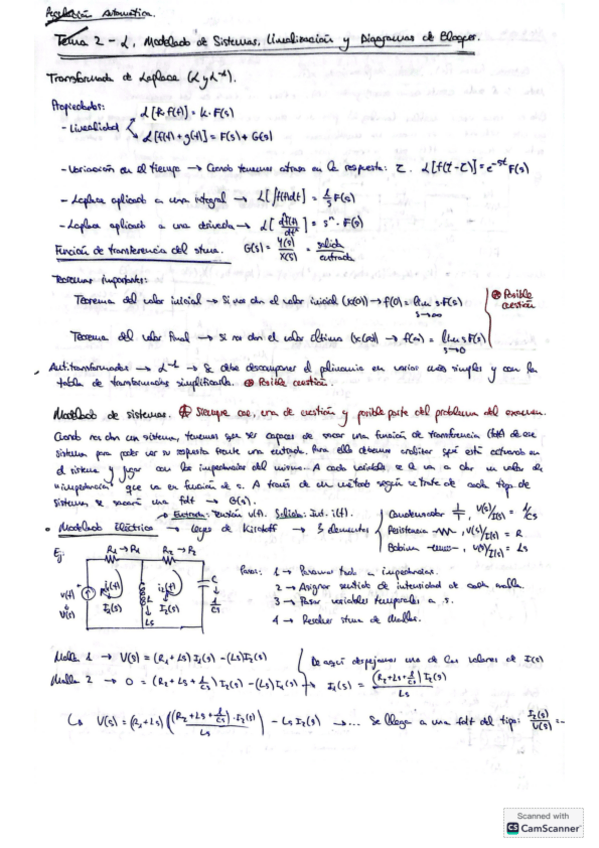 Regulación Automática.
Tema 2 - L, Modelado de Sistemas, Linealización y Diagramas de Bloques.
Transformada de Laplace (L y L⁻¹).
Propiedades:
- Linealidad
L[k·f(t)] = k·F(s)
L[f(t)+g(t)] = F(s)+G(s)
- Variación en el tiempo → Cuando tenemos atraso en la respuesta: τ. L[f(t-τ)] = e^-sτ F(s)
- Laplace aplicado a una integral → L[∫f(t)dt] = 1/s F(s)
- Laplace aplicado a una derivada → L[dⁿf(t)/dtⁿ] = sⁿ·F(s)
Función de transferencia del stma. G(s) = Y(s)/X(s) = salida/entrada
Teoremas importantes:
Teorema del valor inicial → Si nos dan el valor inicial (x(0)) → f(0) = lim s·F(s)
s→∞
Posible cuestión
Teorema del valor final → si nos dan el valor último (x(∞)) → f(∞) = lim sF(s)
s→0
Antitransformadas → L⁻¹ → Se debe descomponer el polinomio en varios más simples y con la
tabla de transformadas simplificarla. Posible cuestión.
Modelado de sistemas. Siempre cae, era de cuestión y posible parte del problema del examen.
Cuando nos dan un sistema, tenemos que ser capaces de sacar una función de transferencia (fdt) de ese
sistema para poder ver su respuesta frente una entrada. Para ello debemos analizar qué está actuando en
el sistema y jugar con las impedancias del mismo. A cada variable se le va a dar un valor de
"impedancia" que va en función de s. A través de un método según se trate de cada tipo de
sistemas se sacará una fdt → G(s).
→ Entrada: Tensión v(t). Salida: Int. i(t).
• Modelado Eléctrico → Leyes de Kirchoff → 3 elementos
Condensador, V(s)/I(s) = 1/Cs
Resistencia, V(s)/I(s) = R
Bobina, V(s)/I(s) = Ls
Ej:
R₁→R₁ R₂→R₂
v(t)
↓
V(s)
i₁(t)
I₁(s)
L
↓
Ls
i₂(t)
↓
I₂(s)
C
↓
1/Cs
Pasos: 1 → Pasamos todo a impedancias.
2 → Asignar sentido de intensidad de cada malla.
3 → Pasar variables temporales a s.
4 → Resolver stma de mallas.
Malla 1 → V(s) = (R₁+Ls)I₁(s) - (Ls)I₂(s)
Malla 2 → 0 = (R₂+Ls+1/Cs)I₂(s) - (Ls)I₁(s)
De aquí despejamos uno de los valores de I(s)
→ I₁(s) = (R₂+Ls+1/Cs)I₂(s)/Ls
↳ V(s) = (R₁+Ls)((R₂+Ls+1/Cs)·I₂(s)/Ls) - LsI₂(s) → ... Se llega a una fdt del tipo: I₂(s)/V(s) = ...
Scanned with
CS CamScanner